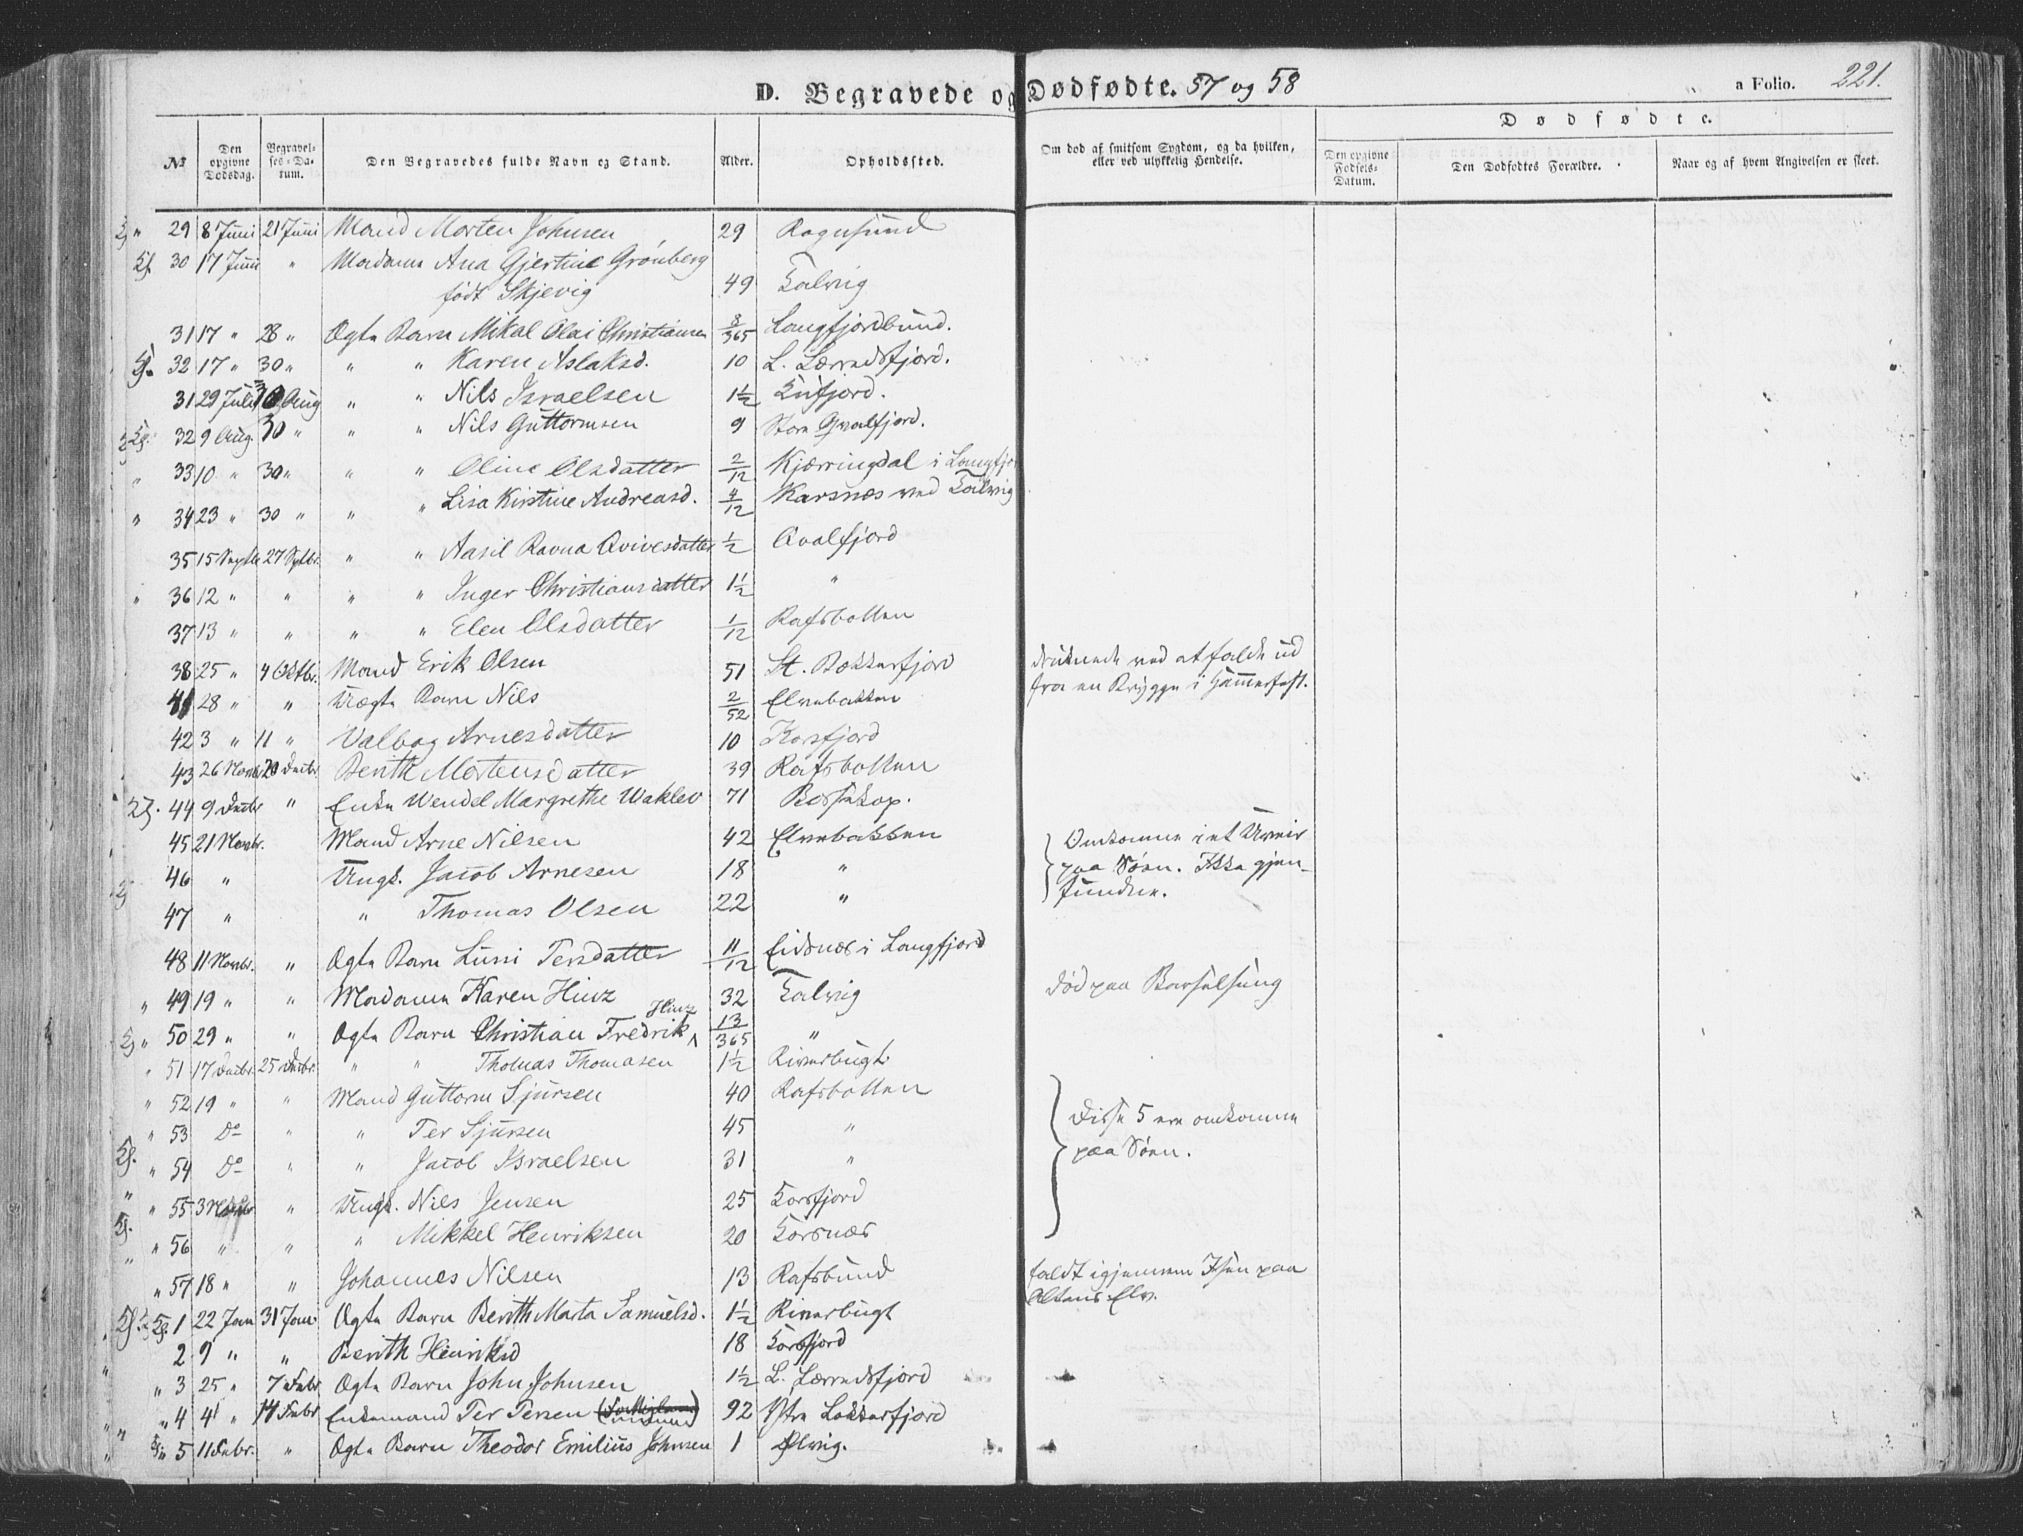 D. Begravede og Dødfødte. 57 og 58
a Folio. 221.
Dødfødte.
№ | Den opgivne Dødsdag. | Begravelses-Datum. | Den Begravedes fulde Navn og Stand. | Alder. | Opholdssted. | Om død af smitsom Sygdom, og da hvilken, eller ved ulykkelig Hendelse. | Den opgivne Fødsels-Datum. | Den Dødfødtes Forældre. | Naar og af hvem Angivelsen er skeet.
29 8 Juni 21 Juni Mand Morten Johnsen 29 Rognsund
30 17 Juni " Madame Ana Gjertine Grönberg
født Skjevig 49 Talvig
31 17 " 28 " Ægte Barn Mikal Olai Christiansen 8/365 Langfjordbund.
32 17 " 30 " " " Karen Aslaksd. 10 L. Lærredsfjord.
31 29 Juli 30 Aug " " Nils Israelsen 1½ Kufjord.
32 9 Aug. 30 " " " Nils Guttormsen 9 Store Qvalfjord.
33 10 " 30 " " " Oline Olsdatter 2/12 Kjærringdal i Langfjo
34 23 " 30 " " " Lisa Kirstine Andreasd. 4/12 Karsnæs ved Talvig
35 15 Septb 27 Septbr. " " Aasil Ravna Qvivesdatter ½ Qvalfjord
36 12 " " " " Inger Christiansdatter 1½ "
37 13 " " " " Elen Olsdatter 1/12 Rafsbotten
38 25 " 4 Oktbr. Mand Erik Olsen 51 St. Bekkerfjord druknede ved at falde ud
fra en Brygge i Hammerfest.
41 28 " " Uægte Barn Nils 2/52 Elvebakken
42 3 " 11 " Valbog Arnesdatter 10 Korsfjord
43 26 Novb 20 Decbr Berith Mortensdatter 39 Rafsbotten
44 9 Decbr " Enke Wendel Margrethe Waklev 71 Bossekop.
45 21 Novbr. Mand Arne Nilsen 42 Elvebakken Omkomne i et Uveir
46 " Ungk. Jacob Arnesen 18 " paa Søen. Ikke gjen-
47 " " Thomas Olsen 22 " fundne.
48 11 Novbr. " Ægte Barn Lussi Tersdatter 11/12 Eidsnæs i Langfjord
49 19 " " Madame Karen Hinz 32 Talvig død paa Barselseng
50 29 " " Ægte Barn Christian Fredrik Hinz 13/365 "
51 17 Decbr. 25 Decbr. " " Thomas Thomasen 1½ Riverbugt
52 19 " " Mand Guttorm Sjursen 40 Rafsbotten
53 Do " " Ter Sjursen 45 " Disse 5 ere omkomne
54 Do " " Jacob Israelsen 31 " paa Søen.
55 3 " Ungk. Nils Jensen 25 Korsfjord
56 " " " Mikkel Henriksen 20 Korsnæs
57 18 " " Johannes Nilsen 13 Rafsbund faldt igjennem Isen paa
Altens Elv.
1 22 Jan 31 Jan Ægte Barn Berith Marta Samuelsd. 1½ Riverbugt
2 9 " " Berith Henriksd 18 Korsfjord
3 25 " 7 Febr Ægte Barn John Johnsen 1½ L. Lærredsfjord
4 4 " 14 Febr Enkemand Ter Tersen 92 Ytre Lokkerfjord
5 11 Febr. " Ægte Barn Theodor Emilius Johnsen 1 Ølvig.